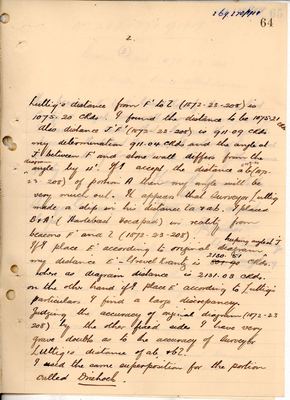 64
2.
Luttig's distance from F' to Z (1872-23-208) is
1075.20 Ckds. I found the distance to be 1075.21 Ckds
Also distance J'F' (1872-23-208) is 911.09 Ckds
my determination 911.04 Ckds and the angle at
J' between F' and stone wall differs from the diagram
angle by 11'. If I accept the distance ab (1872-
23-208) of portion A then my angle will be
very much out. It appears that Surveyor Luttig
made a slip in his distance ca + ab. I placed
D+A' ( ) from
beacons F' and Z (1872-23-208)
If I place E' according to original diagram, keeping angle at J'
my distance E'- is 2130.51 Ckds.
where as diagram distance is 2131.03 Ckds.
on the other hand if I place E' according to Luttig's
particulars I find a large discrepancy.
Judging the accuracy of original diagram (1872-23
208) by the other fixed sides I have very
grave doubts as to the accuracy of Surveyor
Luttig's distance of ab + bZ.
I used the same superposition for the portion
called Driehoek.